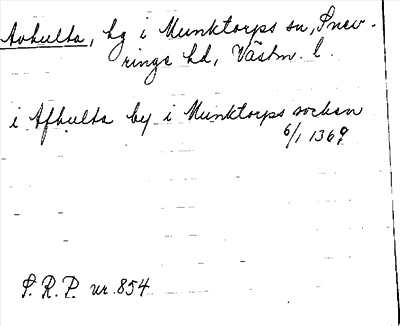 Avhulta, by i Munktorps sn, Snev-
ringe hd, Västm. l.
i Afhulta by i Munktorps sockan
6/1 1369
S. R. P. nr 854